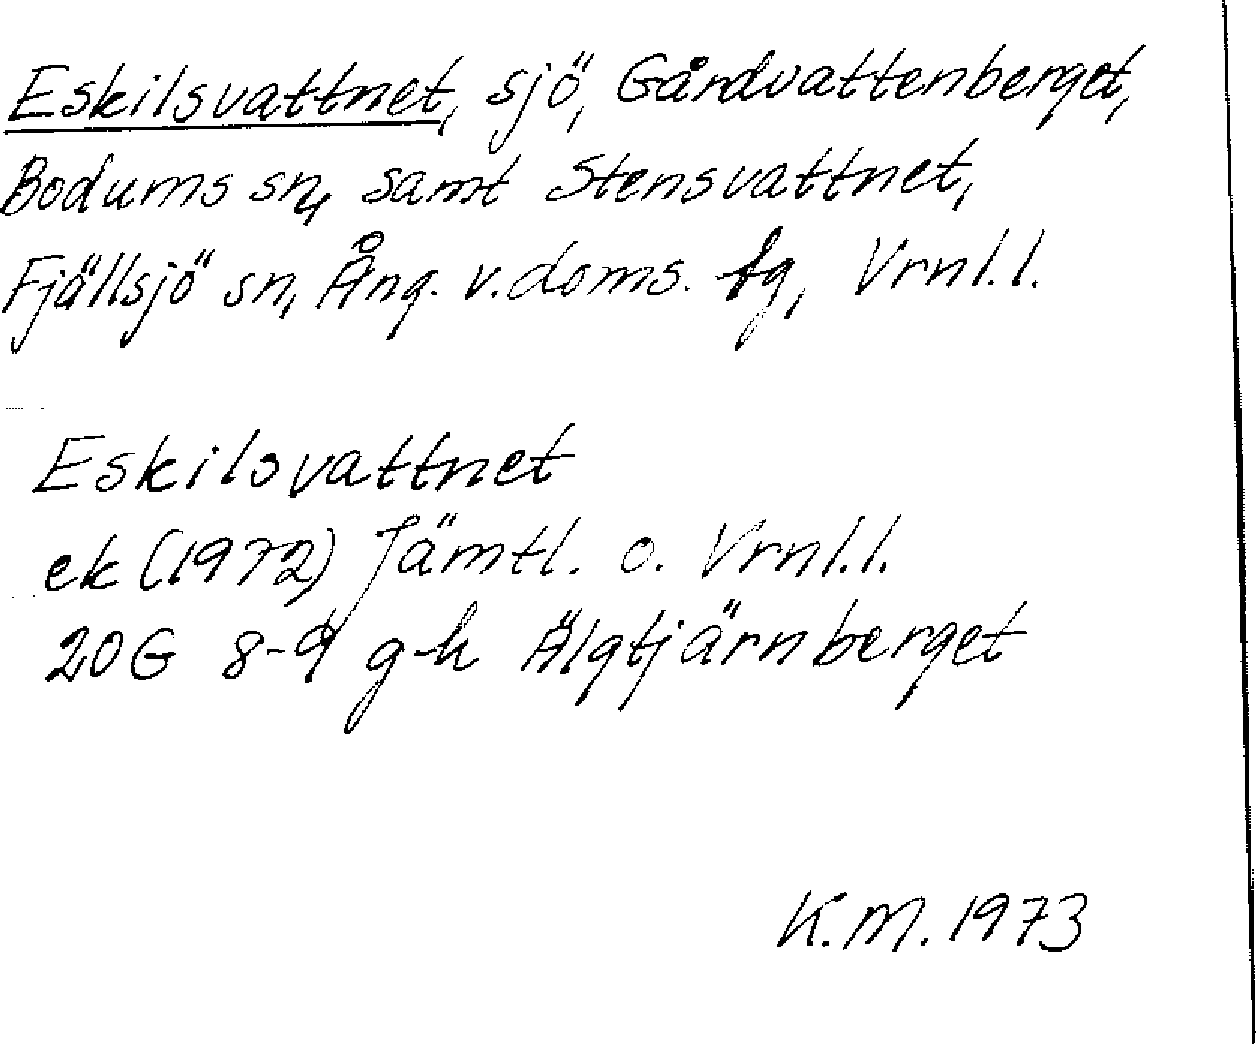 Eskilsvattnet, sjö, Gårdvattenberget,
Bodums sn, samt Stensvattnet,
Fjällsjö sn, Ång. v. doms. fg, Vrnl.l.
Eskilsvattnet
ek (1972) Jämtl. o. Vrnl.l.
20G 8-9 g-h Älgtjärnberget
K.M. 1973